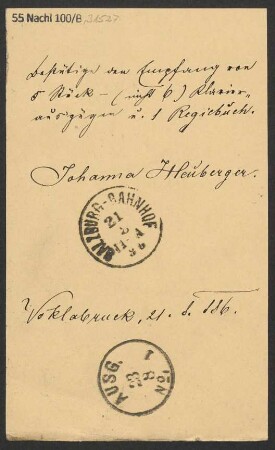 55 Nachl 100/B,
bestätige den Empfang von
5 Stück – (nicht 6) Klavier-
auszügen u. 1 Regiebuch.
Johanna Heuberger.
SALZBURG-BAHNHOF
21
8
86
Vöklabruck, 21. 8. 886.
AUSG.